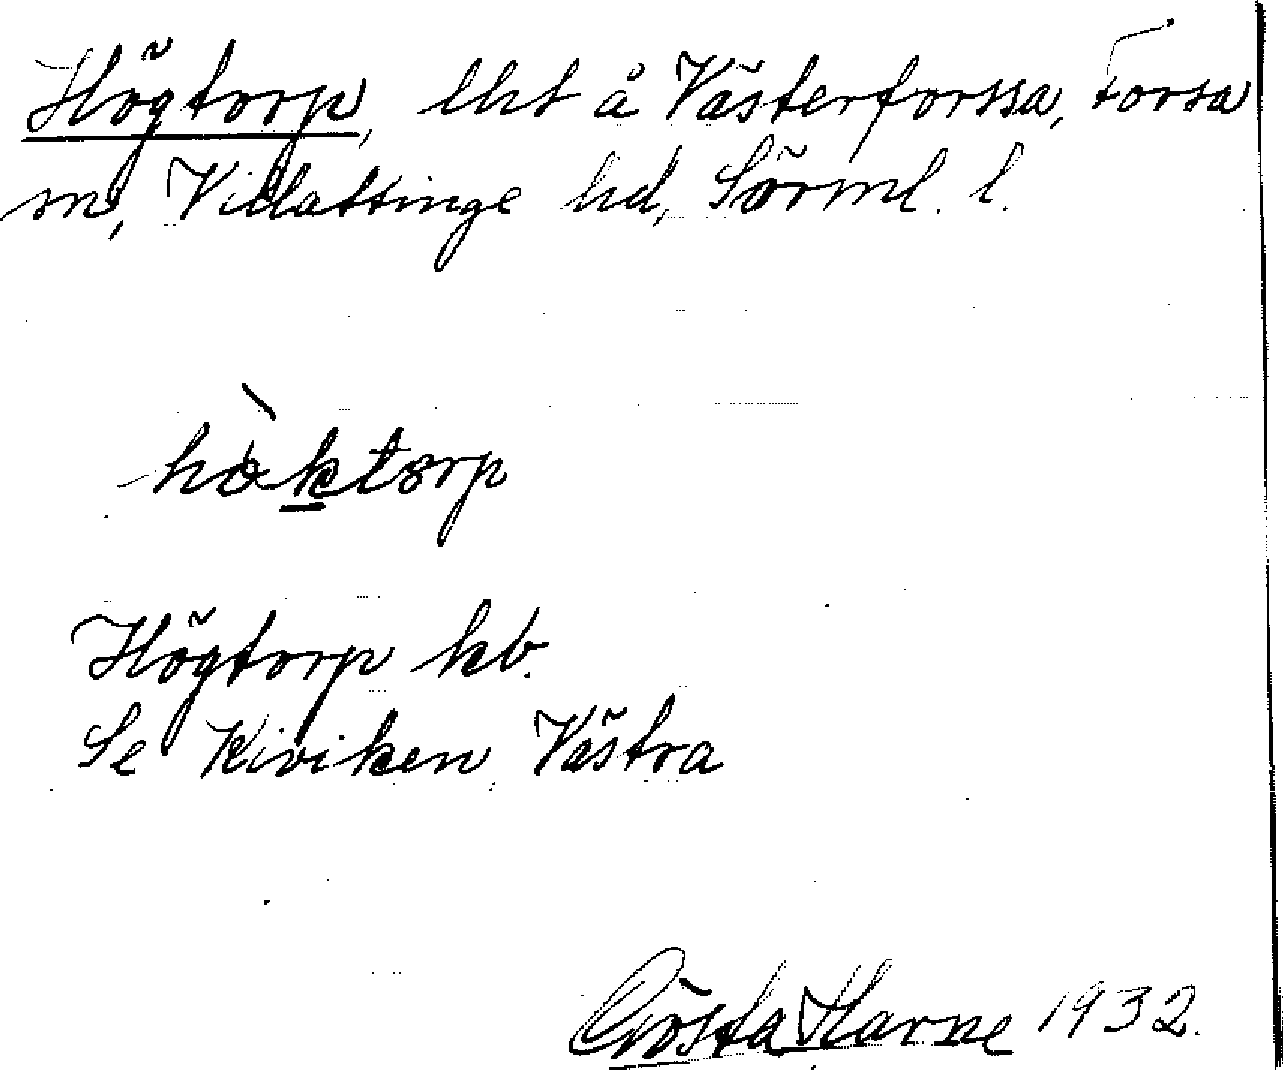 Högtorp, lht å Västerforssa, Forsa
sn, Villåttinge hd, Sörml. l.
hòktorp
Högtorp kb.
Se Kiviken Västra
Gösta Harne 1932.